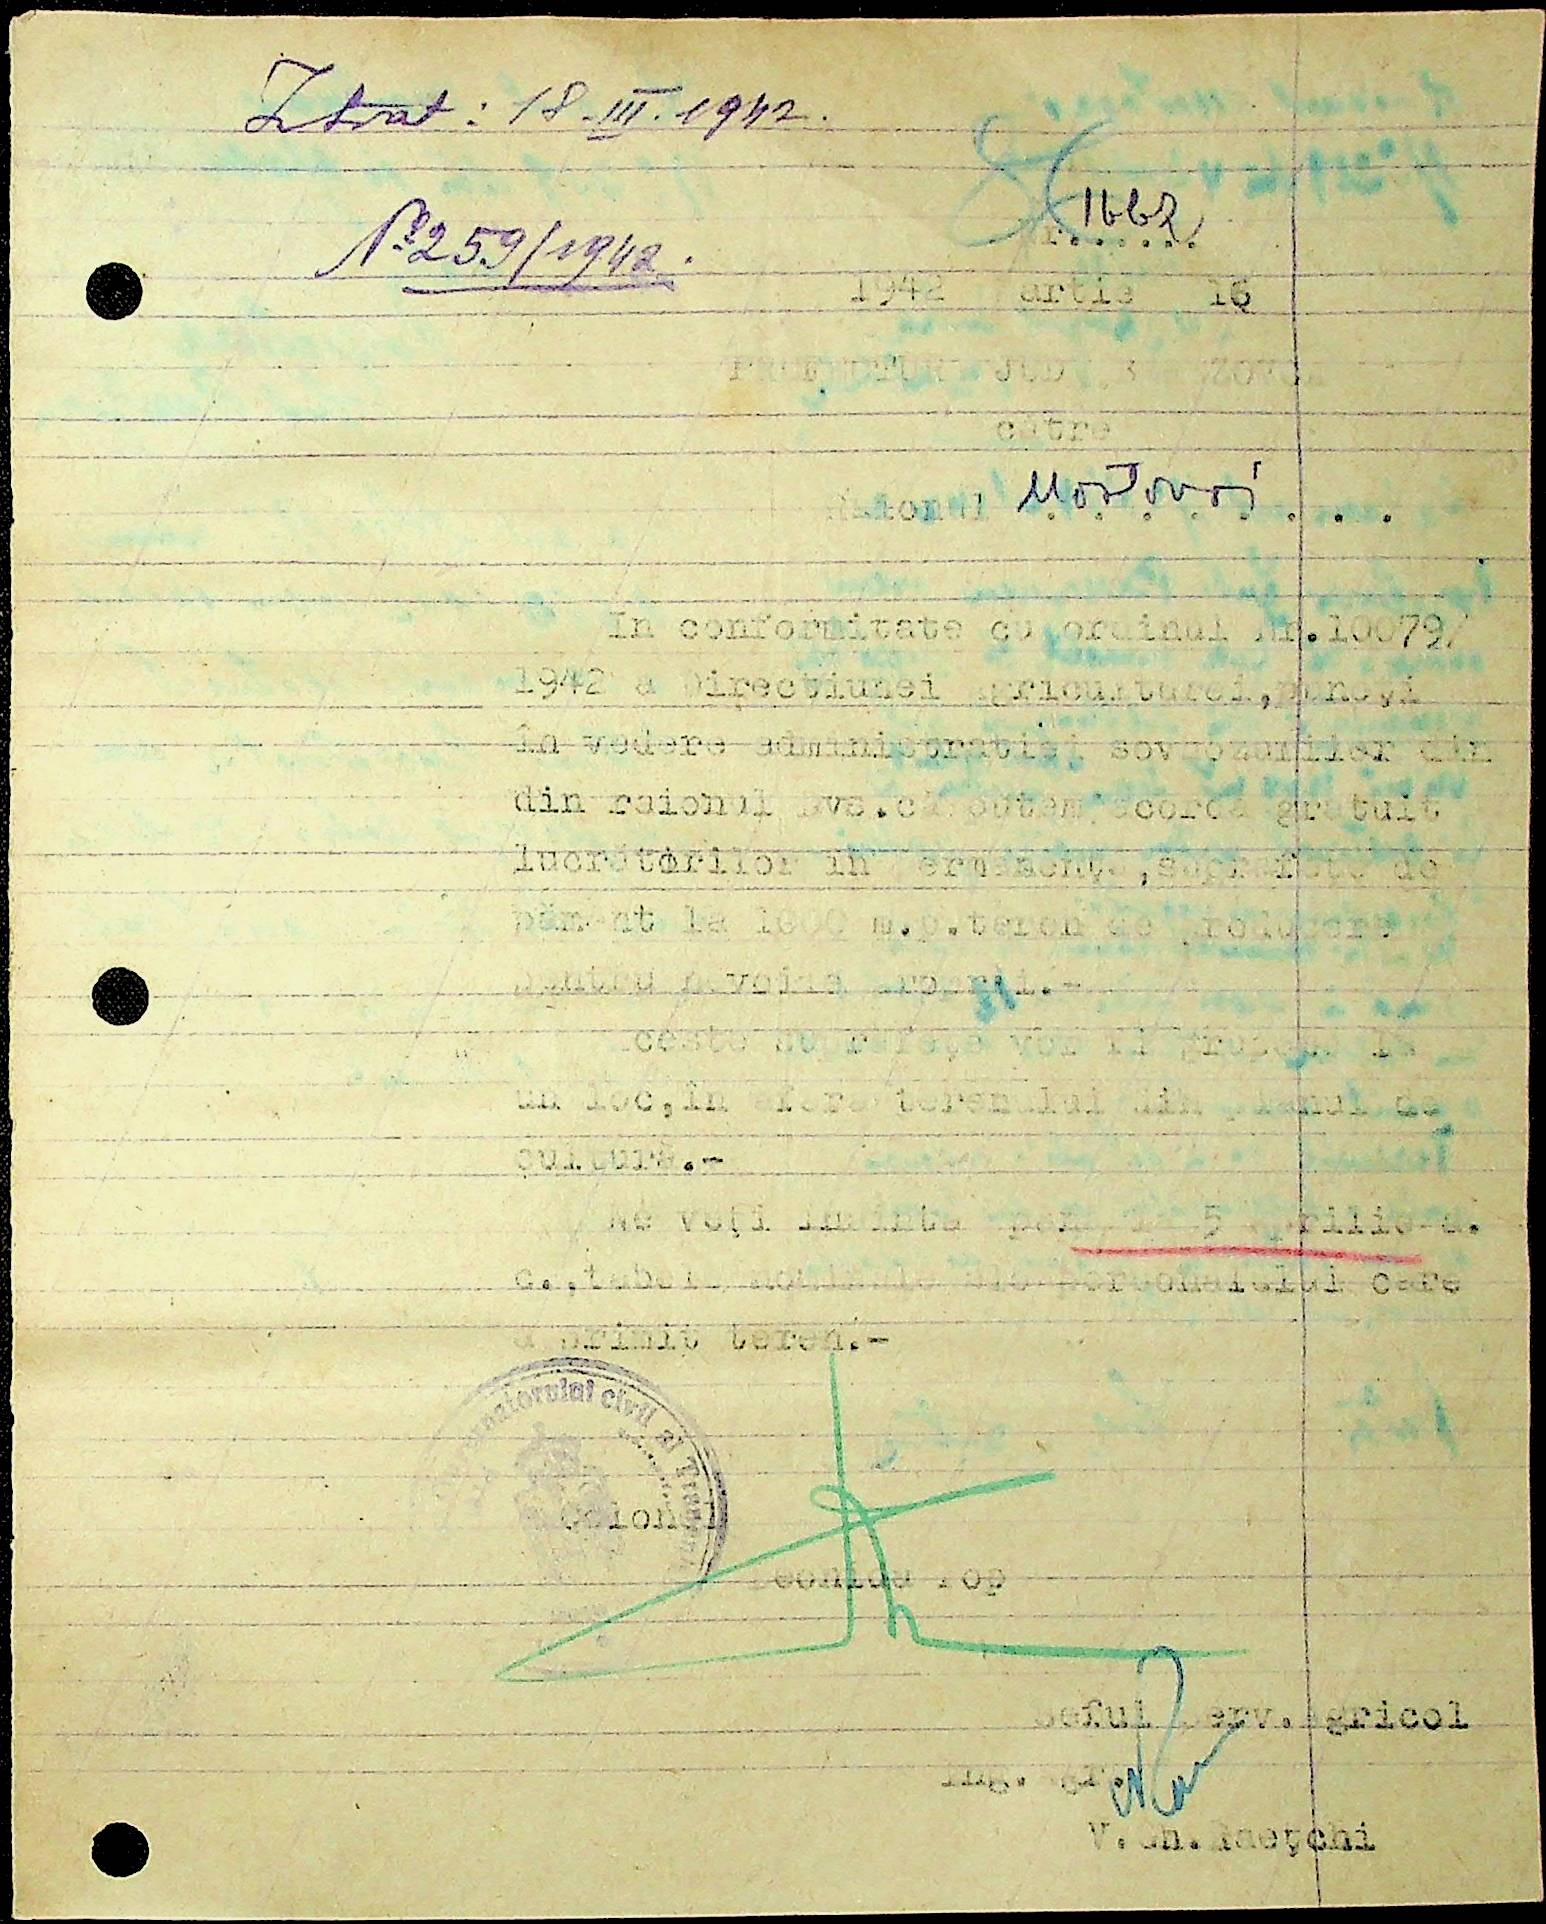 Intrat: 18.III.1942.
№ 259/1942.
Nr. 1662
1942 Martie 16
PREFECTURA JUD. BEREZOVCA
către
Raionul Mostovoi
In conformitate cu ordinul Nr.10079/
1942 a Direcțiunei Agriculturei, puneți
în vedere administrației sovhozurilor din
din raionul Dvs.că putem acorda gratuit
lucrătorilor în permanență, suprafețe de
pământ la 1000 m.p.teren de
pentru nevoile proprii.-
Aceste suprafețe vor fi grupate la
un loc, în afara terenului din planul de
cultură.-
Ne veți înainta până la 5 Aprilie a.
c., tabele nominale ale personalului care
a primit teren.-
Guvernatorului civil al Transnistriei
Colonel
Leonida Pop
Șeful Serv.Agricol
Ing. Agr.
V. Gh.